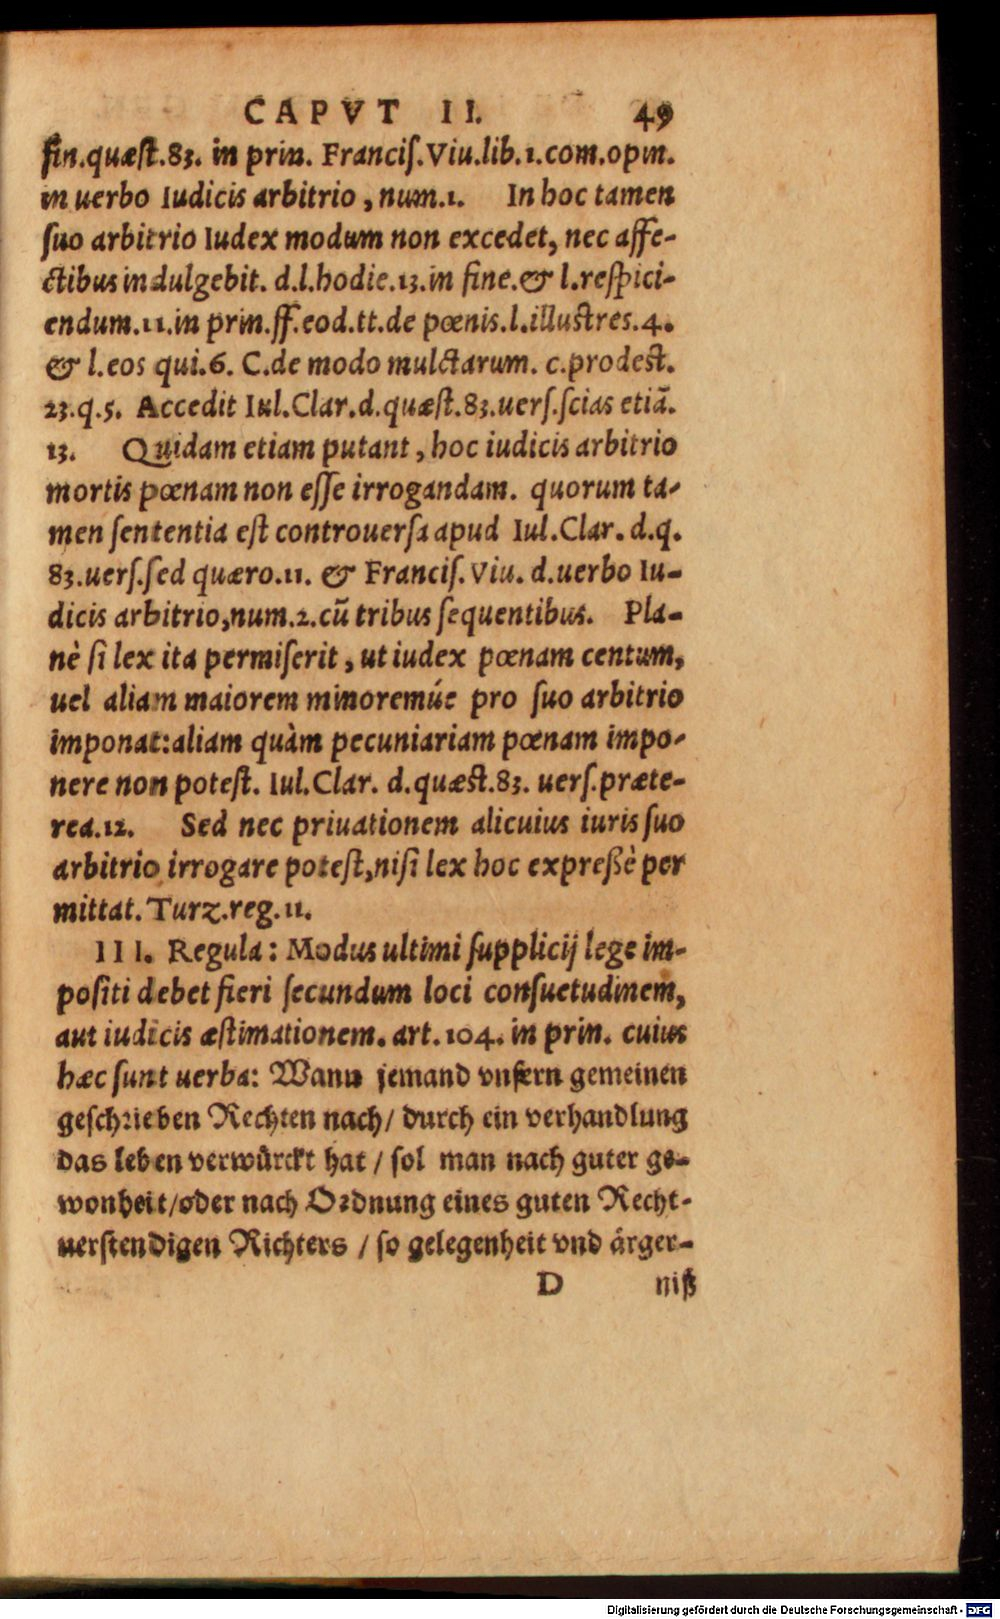 CAPVT II. 49
fin.quæſt.83. in prin. Franciſ.Viu.lib.1.com.opin.
in uerbo Iudicis arbitrio, num.1. In hoc tamen
ſuo arbitrio Iudex modum non excedet, nec affe-
ctibus indulgebit. d.l.hodie.13.in fine.& l.reſpici-
endum.11.in prin.ff.eod.tt.de pœnis.l.illuſtres.4.
& l.eos qui.6. C.de modo mulctarum. c.prodeſt.
23.q.5. Accedit Iul.Clar.d.quæſt.83.uerſ.ſcias etiā.
13. Quidam etiam putant, hoc iudicis arbitrio
mortis pœnam non eſſe irrogandam. quorum ta-
men ſententia eſt controuerſa apud Iul.Clar. d.q.
83.uerſ.ſed quæro.11. & Franciſ. Viu. d.uerbo Iu-
dicis arbitrio,num.2.cū tribus ſequentibus. Pla-
nè ſi lex ita permiſerit, ut iudex pœnam centum,
uel aliam maiorem minoremúe pro ſuo arbitrio
imponat:aliam quàm pecuniariam pœnam impo-
nere non poteſt. Iul.Clar. d.quæſt.83. uerſ.præte-
rea.12. Sed nec priuationem alicuius iuris ſuo
arbitrio irrogare poteſt,niſi lex hoc expreßè per
mittat. Turz.reg.11.
III. Regula: Modus ultimi ſupplicij lege im-
poſiti debet fieri ſecundum loci conſuetudinem,
aut iudicis æſtimationem. art.104. in prin. cuius
hæc ſunt uerba: Wann jemand vnſern gemeinen
geſchrieben Rechten nach/ durch ein verhandlung
das leben verwürckt hat / ſol man nach guter ge-
wonheit/oder nach Ordnung eines guten Recht-
uerſtendigen Richters / ſo gelegenheit vnd ärger-
D niß
Digitalisierung gefördert durch die Deutsche Forschungsgemeinschaft - DFG